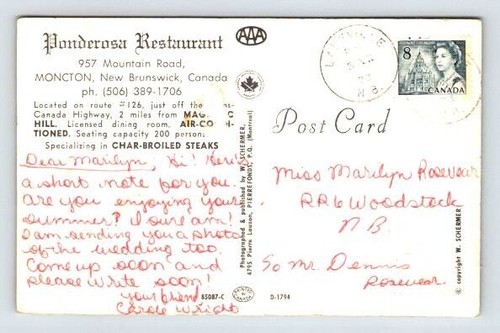 Ponderosa Restaurant
957 Mountain Road,
MONCTON, New Brunswick, Canada
ph. (506) 389-1706
Located on route #126, just off the ns-
Canada Highway, 2 miles from MAG C
HILL. Licensed dining room. AIR-CO I-
TIONED. Seating capacity 200 person.
Specializing in CHAR-BROILED STEAKS
Dear Marilyn, Hi! Here's
a short note for you.
Are you enjoying your
summer? I sure am!
I am sending you a photo
of the wedding too.
Come up soon and
please write soon!
your friend
Carole Wright
AAA
Photographed & published by W. SCHERMER
4795 Pierre Lauzon, PIERREFONDS, P.Q. (Montreal)
85087-C
D-1794
8
CANADA
N B
Post Card
Miss Marilyn Rosevear
RR6 Woodstock
N.B.
c/o Mr. Dennis
Rosevear
© copyright W. SCHERMER